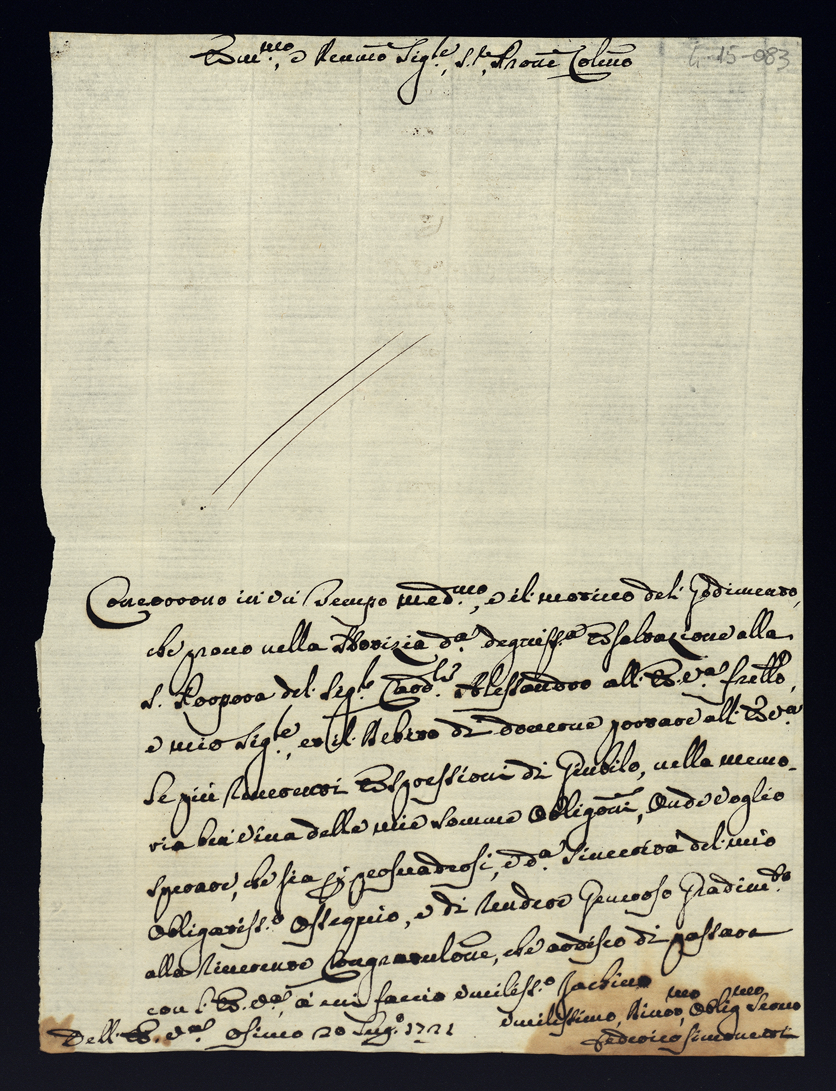 Em.mo, e Reumo Sig.re, S.re, Prone Colmo
4-15-083
Concorrono in un tempo med.mo, e il motivo del Godimento,
che provo nella Notizia d.a degniss.a Essaltazione alla
S. Porpora del Sig.re Card.le Alessandro all' E. V.a fratello,
e mio Sig.re, et il debito di dovere portare all' E. V.a
le più riverenti Espressioni di Giubilo, nella memo-
ria ben viva delle mie somme Obligoni, Onde voglio
sperare, che sia p persuadersi, e d.a Sincerità del mio
Obligatiss.o Ossequio, e di rendere Generoso Gradim.to
alla riverente Congratulone, che ardisco di passare
con l' E. V.a, à cui faccio umiliss.o Inchino
Dell' E. V.a Osimo 20 Lug.o 1721
Umilissimo, Riu.mo, Oblig.mo Seruo
Federico Simonetti